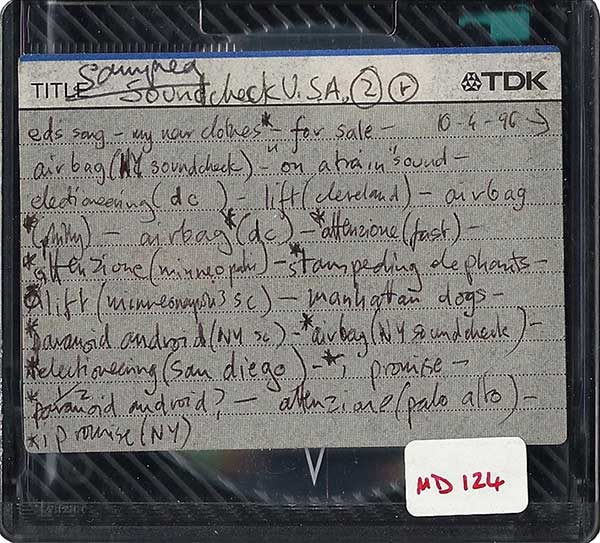 Sampled
TITLE Soundcheck U.S.A. 2 TDK
ed's song - my new clothes* - for sale - 10-4-96 →
airbag (NY soundcheck) - "on a train" sound -
electioneering (dc) - lift (cleveland) - airbag
* (philly) - airbag* (dc) - *attenzione (fast) -
*attenzione (minneapolis) - *stampeding elephants -
lift (minneonapolis sc) - manhattan dogs -
*paranoid android (NY sc) - *airbag (NY soundcheck) -
*electioneering (san diego) - *i promise -
*paranoid android 1/2? - attenzione (palo alto) -
*i promise (NY)
MD 124